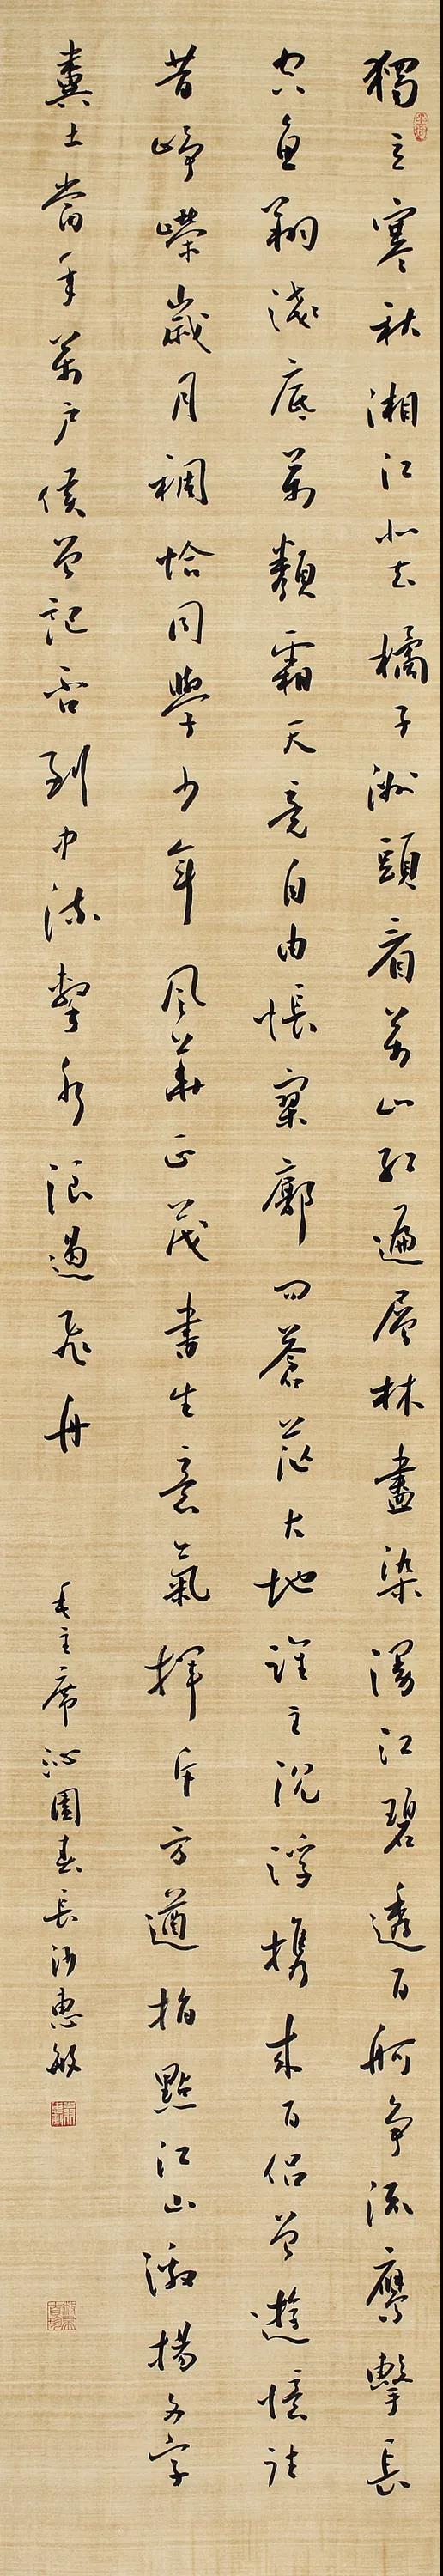 獨立寒秋湘江北去橘子洲頭看萬山紅遍層林盡染漫江碧透百舸爭流鷹擊長
空魚翔淺底萬類霜天竞自由悵寥廓问蒼茫大地誰主沉浮携來百侶曾遊憶往
昔崢嶸歲月稠恰同學少年風華正茂書生意氣揮斥方遒指點江山激揚文字
糞土當年萬戶侯曾記否到中流擊水浪遏飛舟
毛主席沁園春長沙惠敏